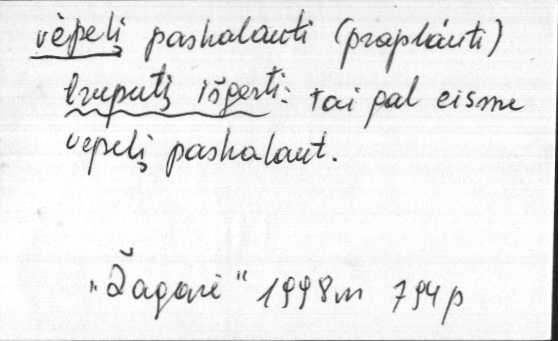 vèpelį paskalauti (prapláuti)
truputį išgerti: tai gal eisme
vepelį paskalaut.
„Žagarė“ 1998m 794p